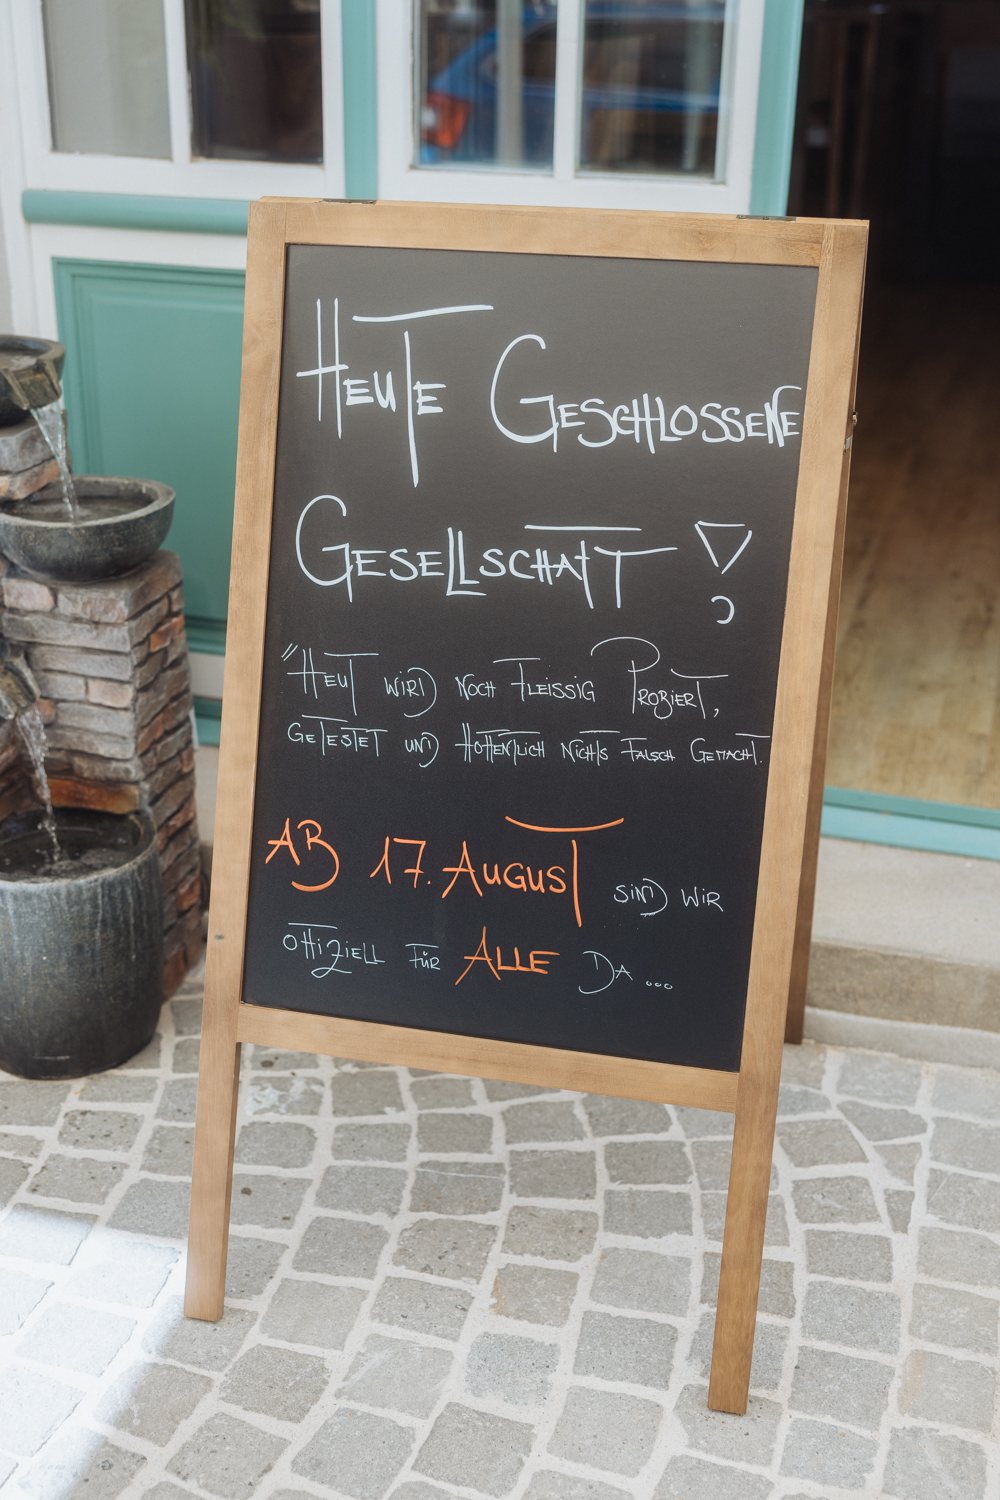 HEUTE GESCHLOSSENE
GESELLSCHAFT !
"HEUT WIRD NOCH FLEISSIG PROBIERT,
GETESTET UND HOFFENTLICH NICHTS FALSCH GEMACHT.
AB 17. AUGUST SIND WIR
OFFIZIELL FÜR ALLE DA ...